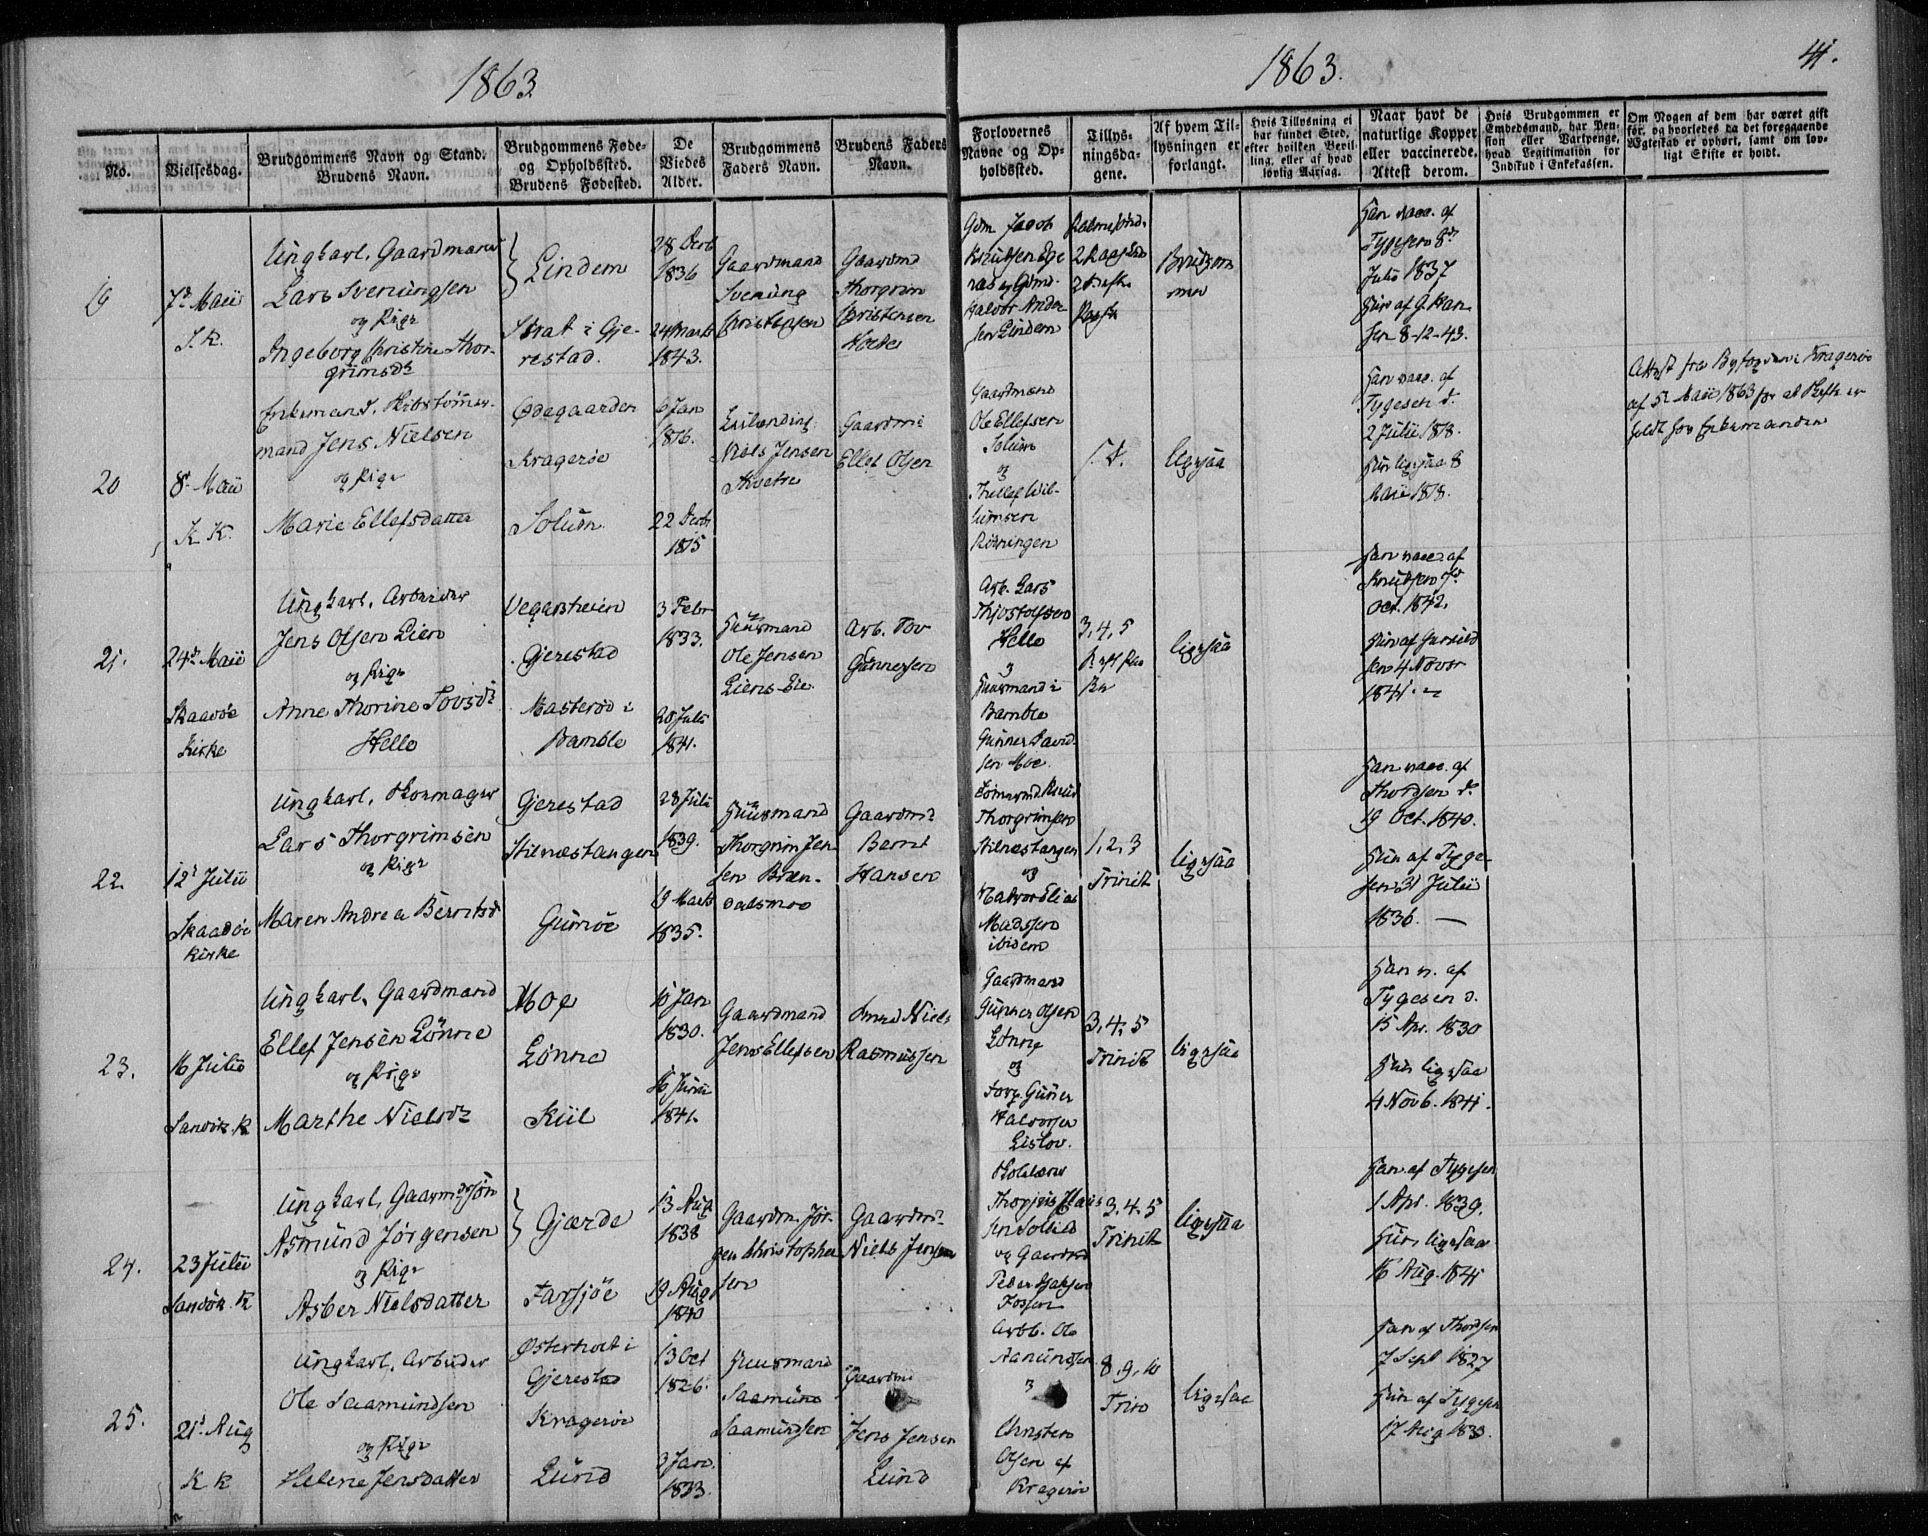 1863
1863.
41.
No.
Vielsesdag.
Brudgommens Navn og Stand.
Brudens Navn.
Brudgommens Føde-
og Opholdssted.
Brudens Fødested.
De
Viedes
Alder.
Brudgommens
Faders Navn.
Brudens Faders
Navn.
Forlovernes
Navne og Op-
holdssted.
Tillys-
ningsda-
gene.
Af hvem Til-
lysningen er
forlangt.
Hvis Tillysning ei
har fundet Sted,
efter hvilken Bevil-
ling, eller af hvad
lovlig Aarsag.
Naar havt de
naturlige Kopper
eller vaccinerede,
Attest derom.
Hvis Brudgommen er
Embedsmand, har Pen-
sion eller Vartpenge,
hvad Legitimation for
Indskud i Enkekassen.
Om Nogen af dem har været gift
før, og hvorledes da det foregaaende
Ægteskab er ophørt, samt om lov-
ligt Skifte er holdt.
19
7d Maii
S. K.
Ungkarl, Gaardmand
Lars Svenungsen
og Pige
Ingeborg Christine Thor-
grimsdr
Lindem
Strat i Gje-
restad.
28 Decb
1836
24 Marts
1843.
Gaardmand
Svenung
Christensen
Gaardmd
Thorgrim
Christensen
Gdm. Jacob
Knudsen
Halvor Ander
sen Lindem
Palmesønd.
2 Paaskedag
Brudgom
men
Han vacc. af
Tygesen 8d
Julii 1837
Hun af G. Han
sen 8-12-43.
20
8. Maii
K K.
Enkemand,
mand Jens Nielsen
og Pige
Marie Ellefsdatter
Ødegaarden
Kragerøe
Solum
6 Jan
1816.
22 Decb
1815
Niels Jensen
Gaardmd
Ellef Olsen
Gaardmand
Ole Ellefsen
Solum
og
Thellef Wil-
lumsen
Rønningen
S. D.
ligesaa
Han vacc. af
Tygesen d.
2 Julii 1818.
Hun ligesaa 8
Maii 1818.
Attest fra Byfogden i Kragerøe
af 5te Maii 1863 for at Skifte er
holdt for Enkemanden
21.
24d Maii
Skaadøe
Kirke
Ungkarl, Arbeider
Jens Olsen Lien
og Pige
Anne Thorine Tovsdr
Helle
Vegarsheien
Gjerestad
Masterød i
Bamble
3 Febr
1833.
28 Julii
1841.
Huusmand
Ole Jensen
Liens Eie
Arb. Tov
Gunnersen
Arb. Lars
Thjostolfsen
Helle
og
Huusmand i
Bamble
Gunner David
sen Moe
3, 4, 5
ligesaa
Han vacc. af
Knudsen 7d
Oct. 1842.
Hun af
sen 4 Novbr
1841.
22.
12d Julii
Skaadøe
Kirke
Ungkarl, Skomager
Lars Thorgrimsen
og Pige
Maren Andrea Berntsdr
Gjerestad
Stilnæstangen
Gumøe
28 Julii
1839.
9 Marts
1835.
Huusmand
Thorgrim Jen-
sen Bræn-
dalsmoe
Gaardmd
Bernt
Hansen
Tømmermd Knud
Thorgrimsen
Stilnæstangen
og
Halvor Elias
Madssen
ibidem
1, 2, 3
Trinit
ligesaa
Han vacc. af
Thordsen d.
19 Oct. 1840.
Hun af Tyge-
sen 31 Julii
1836.
23.
16 Julii
Sandøk. K
Ungkarl, Gaardmand
Ellef Jensen Lønne
og Pige
Marthe Nielsdr
Moe
Lønne
Kiil
10 Jan
1830.
16 Junii
1841.
Gaardmand
Jens Ellefsen
Niels
Rasmussen
Gaardmand
Gunner Olsen
Lønne
og
Forp. Guner
Halvorsen
Lislov.
3, 4, 5
Trinit
ligesaa
Han v. af
Tygesen d.
15 Apr. 1830
Hun ligesaa
4 Novb. 1841.
24.
23 Julii
Sandøk. K
Ungkarl, Gaardmdssøn
Asmund Jørgensen
og Pige
Asber Nielsdatter
Gjærde
Farsjøe
13 Aug
1838
19 Aug
1840
Gaardm. Jør-
gen Christopher
sen
Gaardmd
Niels Jensen
Skolelærer
og Gaardmd
Peder Isaksen
Fossen
3. 4. 5
Trinit
ligesaa
Han af Tygesen
1 Apr. 1839.
Hun ligesaa
16 Aug. 1841
25.
21d Aug
K K
Ungkarl, Arbeider
Ole Saamundsen
og Pige
Helene Jensdatter
Østerholt i
Gjerestad
Kragerøe
Lund
13 Oct
1826.
3 Jan.
1833.
Huusmand
Saamund
Saamundsen
Gaardmd
Jens Jensen
Lund
Arbb. Ole
Aanundsen
og
Christen
Olsen af
Kragerøe
8. 9. 10
Trin
ligesaa
Han af Thordsen
7 Sept 1827
Hun af Tygesen
17 Aug 1833.